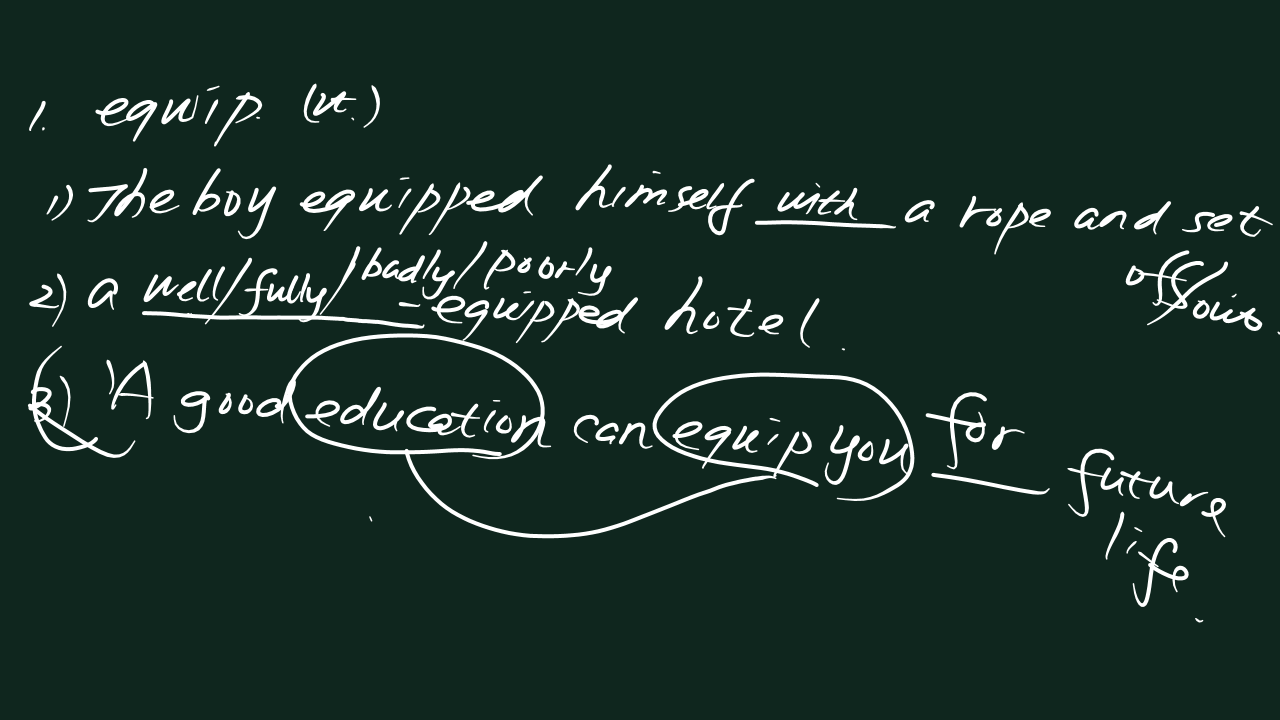 1. equip. (vt.)
1) The boy equipped himself with a rope and set
off/out.
2) a well/fully/badly/poorly
-equipped hotel.
3) A good education can equip you for future
life.